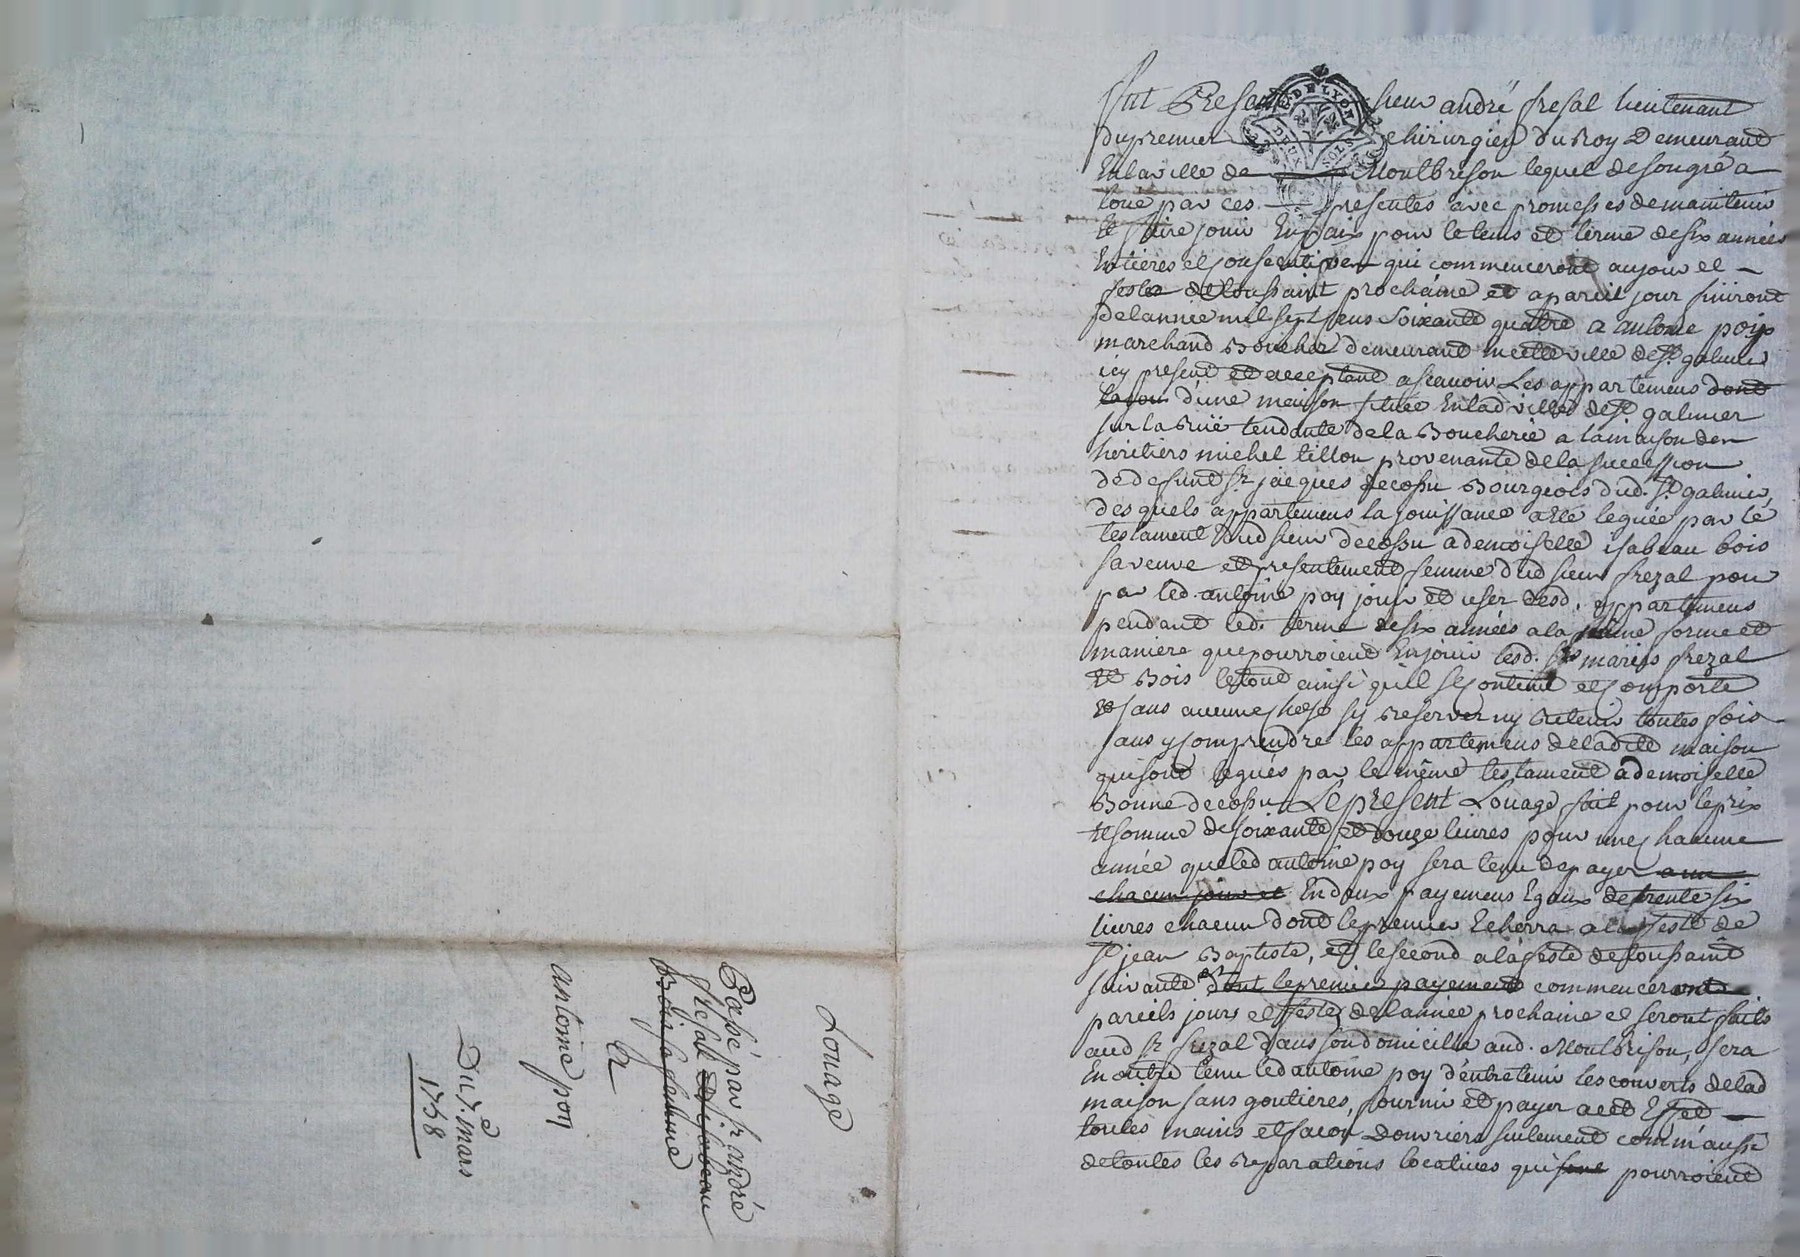 Louage
Passé par Sr. andré
fresal et isabeau
Bois sa femme
A
antoine poy
Du 7e. mars
1758
Fut Present sieur andré fresal lieutenant
du premier chirurgien du Roy Demeurant
En la ville de Montbrison lequel de son gré a
loué par ces presentes avec promesses de maintenir
et faire jouir En paix pour le tems et terme de six années
Entieres et Consecutives qui commenceront au jour et
feste de toussaint prochaine et a pareil jour finiront
de l'année mil sept Cens soixante quatre a antoine poy
marchand Boucher demeurant en cette ville de St. galmier
icy present et acceptant ascavoir Les appartemens dont
d'une meison située En lad ville de St galmier
sur la Ruë tendante de la Boucherie a la maison des
heritiers michel tillon provenante de la succession
de defunt Sr. jacques decossu Bourgeois dud. St. galmier,
desquels appartemens la jouissance a eté leguée par le
testament dud sieur decossu a demoiselle isabeau bois
sa veuve et presentement femme dud sieur frezal pour
par led. antoine poy jouir et user desd. appartemens
pendant led. terme de six années a la même forme et
maniere que pourroient En jouir lesd. mariés frezal
et Bois le tout ainsi qu'il se Contient et Comporte
et sans aucune Chose s'y Reserver ny Retenir toutes fois
sans y Comprendre les appartemens de ladite maison
qui sont legués par le même testament a demoiselle
Bonne decossu Le present Louage fait pour le prix
et somme de soixante et douze livres pour une Chacune
année que led antoine poy sera tenu de payer a un
chacun jour et En deux payemens Egaux de trente six
livres chacun dont le premier Echerra a la feste de
St jean Baptiste, et le second a la feste de toussaint
suivante dont le premier payement commenceront
pareils jours et festes de l'année prochaine et seront faits
aud Sr frezal dans son domicille aud. Montbrison, sera
En outre tenu led antoine poy d'entretenir les couverts de lad
maison sans goutieres, fournir et payer a cet Effet
toutes mains et facon douvriers seulement comm'aussi
de toutes les Reparations locatives qui sont pourroient